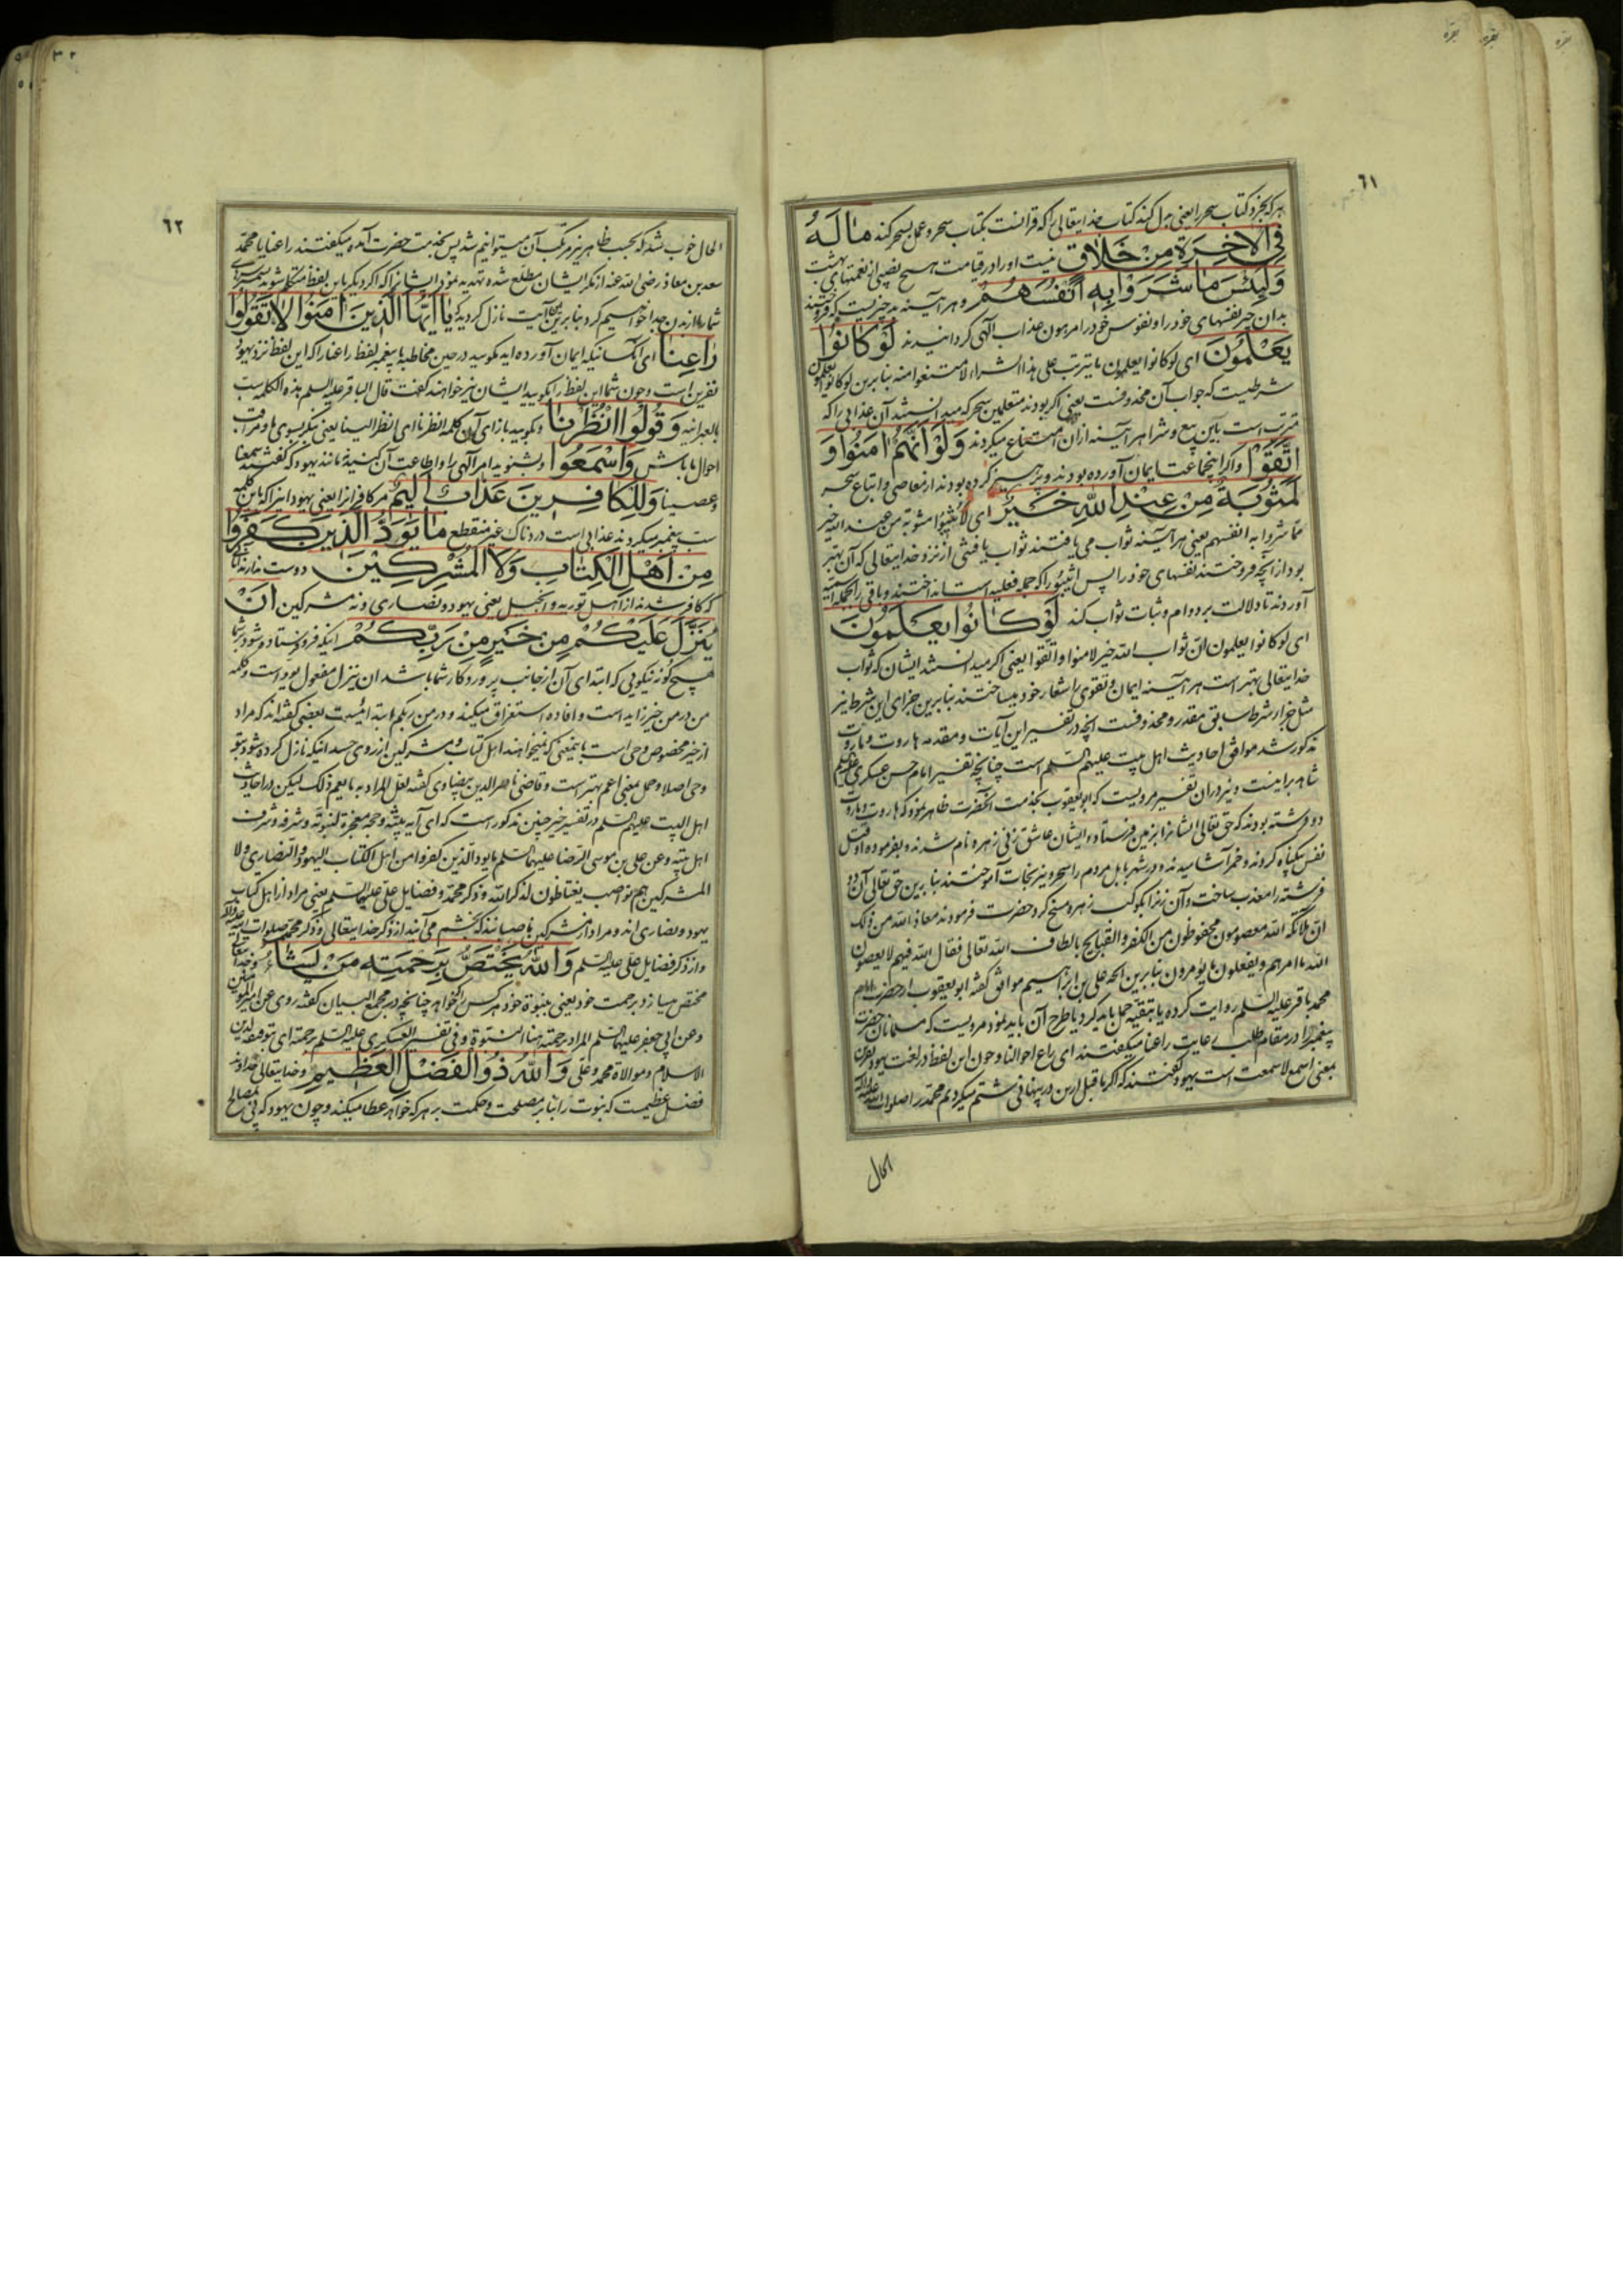 بقره
بقره
بقره
٦١
هر که بخرد کتاب سحر را یعنی بدل کند کتاب خدایتعالی را که قرانست بکتاب سحر و عمل بسحر کند مٰا لَهُ
فِی الْاٰخِرَةِ مِنْ خَلٰاقٍ نیست او را در قیامت هیچ نصیبی از نعمتهای بهشت
وَلَبِئْسَ مٰا شَرَوْا بِهِ اَنْفُسَهُمْ و هر آینه بد چیزیست که فروختند
بدان چیز نفسهای خود را و نفوس خود را مرهون عذاب الهی گردانیدند لَوْ كٰانُوا
يَعْلَمُونَ ای لو کانوا یعلمون ما یترتب علی هذا الشراء لامتنعوا منه بنابرین لو کانوا یعلمون
شرطیست که جواب آن محذوفست یعنی اگر بودند متعلمین سحر که میدانستند آن عذابی را که
مترتب است باین بیع و شرا هر آینه ازان امتناع میکردند وَلَوْ اَنَّهُمْ اٰمَنُوا وَ
اتَّقَوْا و اگر اینجماعت ایمان آورده بودند و پرهیز کرده بودند از معاصی و اتباع سحر
لَمَثُوبَةٌ مِنْ عِنْدِ اللهِ خَيْرٌ ای لاثیبوا مثوبة من عند الله خیر
مما شروا به انفسهم یعنی هر آینه ثواب می یافتند ثواب یافتنی از نزد خدایتعالی که آن بهتر
بود از آنچه فروختند نفسهای خود را پس اثیبوا را که جمله فعلیه است انداختند و باقی را بجمله اسمیه
آوردند تا دلالت بر دوام و ثبات ثواب کند لَوْ كٰانُوا يَعْلَمُونَ
ای لو کانوا یعلمون ان ثواب الله خیر لامنوا و اتقوا یعنی اگر میدانستند ایشان که ثواب
خدایتعالی بهتر است هر آینه ایمان و تقوی را شعار خود میساختند بنابرین جزای این شرط نیز
مثل جزاء شرط سابق مقدر و محذوفست آنچه در تفسیر این آیات و مقدمه هاروت و ماروت
مذکور شد موافق احادیث اهل بیت علیهم السلم است چنانچه تفسیر امام حسن عسکری علیه السلم
شاهد براینست و نیز دران تفسیر مرویست که ابو یعقوب بخدمت آنحضرت ظاهر نمود که هاروت و ماروت
دو فرشته بودند که حق تعالی ایشانرا بزمین فرستاد و ایشان عاشق زنی زهره نام شدند و بفرموده او قتل
نفس بیگناه کردند و خمر آشامیدند و در شهر بابل مردم را سحر و نیرنجات آموختند بنابرین حق تعالی آن دو
فرشته را معذب ساخت و آن زنرا بکوکب زهره مسخ کرد حضرت فرمودند معاذ الله من ذلک
ان ملائکة الله معصومون محفوظون من الکفر و القبایح بالطاف الله تعالی فقال الله فیهم لا یعصون
الله ما امرهم و یفعلون ما یؤمرون بنابرین آنچه علی بن ابرهیم موافق گفته ابو یعقوب از حضرت امام
محمد باقر علیه السلم روایت کرده یا بتقیه حمل باید کرد یا طرح آن باید نمود مرویست که مسلمانان حضرت
پیغمبر را در مقام طلب رعایت راعنا میگفتند ای راع احوالنا و چون این لفظ در لغت یهود نفرین
بمعنی اسمع لا سمعت است یهود گفتند که اگر ما قبل ازین در پنهانی شتم میکردیم محمد را صلوات الله علیه و آله
الحال
٦٢
الحال خوب شد که بحسب ظاهر نیز مرتکب آن میتوانیم شد پس بخدمت حضرت آمده میگفتند راعنا یا محمد
سعد بن معاذ رضی الله عنه از مکر ایشان مطلع شده تهدید نمود ایشانرا که اگر دیگر باین لفظ متکلم شوید سرهای
شما را از بدن جدا خواهیم کرد بنابرین این آیت نازل گردید که يٰا اَيُّهَا الَّذِينَ اٰمَنُوا لٰا تَقُولُوا
رٰاعِنٰا ای آنکسانیکه ایمان آورده اید مگویید در حین مخاطبه با پیغمبر لفظ راعنا را که این لفظ نزد یهود
نفرین است و چون شما این لفظ را بگویید ایشان نیز خواهند گفت قال الباقر علیه السلم هذه الکلمه سب
بالعبرانیه وَقُولُوا انْظُرْنٰا و بگویید بازای آن کلمه انظرنا ای انظر الینا یعنی بنگر بسوی ما و مراقب
احوال ما باش وَاسْمَعُوا و بشنوید امر آلهی را و اطاعت آن کنید نه مانند یهود که گفتند سمعنا
و عصینا وَلِلْكٰافِرِينَ عَذٰابٌ اَلِيمٌ مر کافرانرا یعنی یهود انرا که باین کلمه
سب پیغمبر میکردند عذابی است دردناک غیر منقطع مٰا يَوَدُّ الَّذِينَ كَفَرُوا
مِنْ اَهْلِ الْكِتٰابِ وَلَا الْمُشْرِكِينَ دوست ندارند آنانی
که کافر شدند از اهل توریه و انجیل یعنی یهود و نصاری و نه مشرکین اَنْ
يُنَزَّلَ عَلَيْكُمْ مِنْ خَيْرٍ مِنْ رَبِّكُمْ اینکه فرو فرستاده شود بر شما
هیچ گونه نیکویی که ابتدای آن از جانب پروردگار شما باشد ان ینزل مفعول یود است و کلمه
من در من خیر زایده است و افاده استغراق میکند و در من ربکم ابتدائیست بعضی گفته اند که مراد
از خیر مخصوص وحی است باینمعنی که نمیخواهند اهل کتاب و مشرکین از روی حسد اینکه نازل کرده شود بتو
وحی اصلا و حمل بمعنی اعم بهتر است و قاضی ناصر الدین بیضاوی گفته لعل المراد به ما یعم ذلک لیکن در احادیث
اهل البیت علیهم السلم در تفسیر خیر چنین مذکور است که ای آیه بینة و حجة معجزة لنبوته و شرفه و شرف
اهل بیته و عن علی بن موسی الرضا علیهما السلم ما یود الذین کفروا من اهل الکتاب الیهود و النصاری و لا
المشرکین هم نواصب یغتاظون لذکر الله و ذکر محمد و فضایل علی علیهما السلم یعنی مراد از اهل کتاب
یهود و نصاری اند و مراد از مشرکین ناصبیانند که بخشم می آیند از ذکر خدایتعالی و ذکر محمد صلوات الله علیه و آله
و از ذکر فضایل علی علیه السلم وَاللهُ يَخْتَصُّ بِرَحْمَتِهِ مَنْ يَشٰاءُ و خدایتعالی
مختص میسازد برحمت خود یعنی بنبوة خود هر کس را که خواهد چنانچه در مجمع البیان گفته روی عن امیر المومنین
و عن ابی جعفر علیهما السلم المراد برحمته هنا النبوة و فی تفسیر العسکری علیه السلم رحمته ای توفیقه لدین
الاسلام و موالاة محمد و علی وَاللهُ ذُو الْفَضْلِ الْعَظِيمِ و خدایتعالی خداوند
فضل عظیمست که نبوت را بنابر مصلحت و حکمت بر هر که خواهد عطا میکند و چون یهود که پی بمصالح